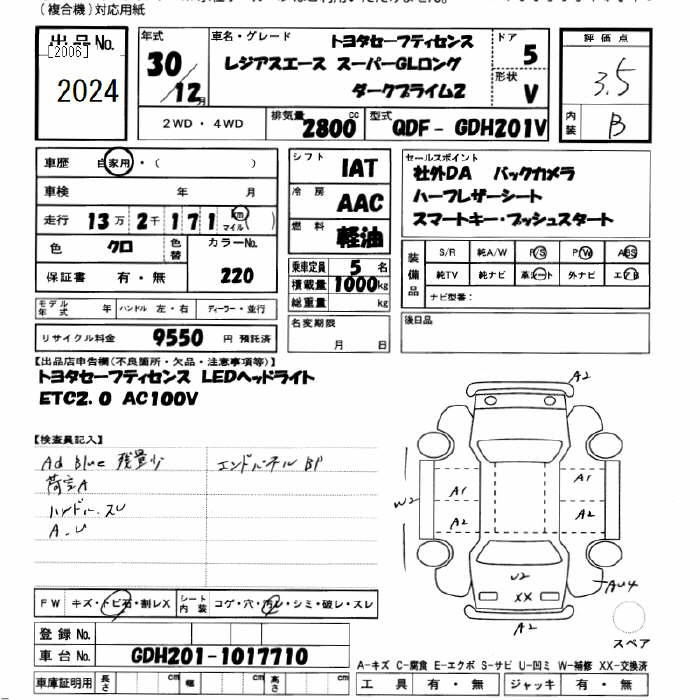 (複合機)対応用紙
出品No.
[2006]
2024
年式
30
12月
車名・グレード
トヨタセーフティセンス
レジアスエース スーパーGLロング
ダークプライム2
ドア
5
形状
V
評価点
3.5
内装
B
2WD・4WD
排気量
2800cc
型式
QDF-GDH201V
車歴 自家用・( )
車検 年 月
走行 13万2千171 km マイル( )
色 クロ 色替 カラーNo.
220
保証書 有・無
シフト IAT
冷房 AAC
燃料 軽油
乗車定員 5名
積載量 1000kg
総重量 kg
セールスポイント
社外DA バックカメラ
ハーフレザーシート
スマートキー・プッシュスタート
装備品
S/R 純A/W P/S P/W ABS
純TV 純ナビ 革シート 外ナビ エアB
ナビ型番:
モデル年式 年 ハンドル 左・右 ディーラー・並行
リサイクル料金 9550 円 預託済
名変期限
月 日
後日品
【出品店申告欄(不良箇所・欠品・注意事項等)】
トヨタセーフティセンス LEDヘッドライト
ETC2.0 AC100V
【検査員記入】
Ad Blue 残量少
エンドパネル BP
荷室A
ハンドル.スレ
A.U
A2
W2
A1
A1
A2
A2
U2
XX
AU4
A2
スペア
FW キズ・トビ石・割レX
シート内装 コゲ・穴・汚レ・シミ・破レ・スレ
登録No.
車台No. GDH201-1017710
車庫証明用 長さ cm 幅 cm 高さ cm
A-キズ C-腐食 E-エクボ S-サビ U-凹ミ W-補修 XX-交換済
工具 有・無 ジャッキ 有・無